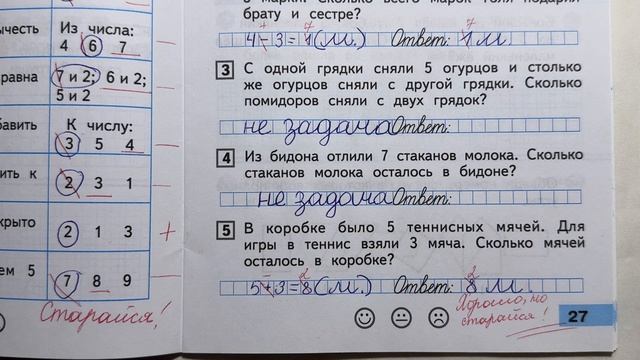 вычесть
Из числа:
4 6 7
равна
7 и 2; 6 и 2;
5 и 2
К числу:
3 5 4
ить к
2 3 1
крыто
2 1 3
ем 5
7 8 9
Старайся!
брату и сестре?
4-3=1(м.) Ответ: 1 м.
3 С одной грядки сняли 5 огурцов и столько
же огурцов сняли с другой грядки. Сколько
помидоров сняли с двух грядок?
не задача Ответ:
4 Из бидона отлили 7 стаканов молока. Сколько
стаканов молока осталось в бидоне?
не задача Ответ:
5 В коробке было 5 теннисных мячей. Для
игры в теннис взяли 3 мяча. Сколько мячей
осталось в коробке?
5+3=8(м.) Ответ: 8 м.
Хорошо, но
старайся!
27